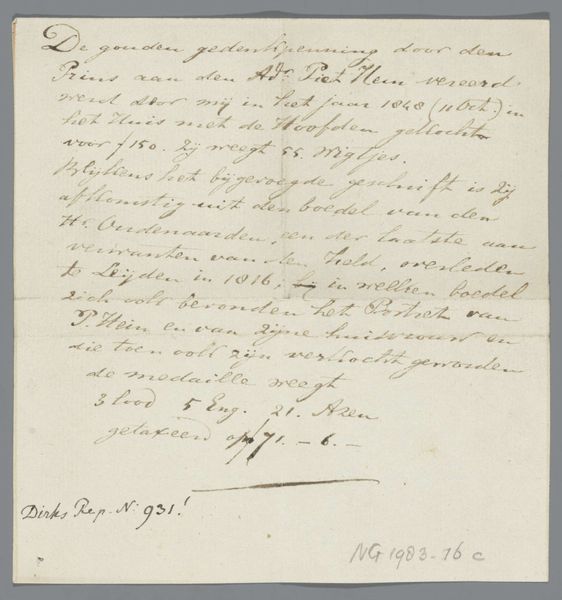 De gouden gedenkpenning door den
Prins aan den Adr. Piet Hein vereerd
werd door mij in het jaar 1848 (11 Oct.) in
het Huis met de Hoofden gekocht
voor f 150. Zij weegt 55 wigtjes.
Blijkens het bijgevoegde geschrift is zij
afkomstig uit den boedel van den
Hr. Oudenaarden, een der laatste aan
verwanten van den held, overleden
te Leijden in 1816, in welken boedel
zich ook bevonden het Portret van
P. Hein en van zijne huisvrouw en
die toen ook zijn verkocht geworden
de medaille weegt
3 lood 5 Eng. 21. Azen
getaxeerd op f 71. - 6. -
Dirks Rep. N. 931!
NG 1983-16 c